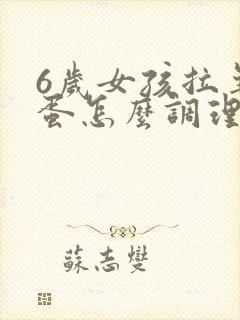 6歲女孩拉羊
蛋怎麼調理
蘇志燮